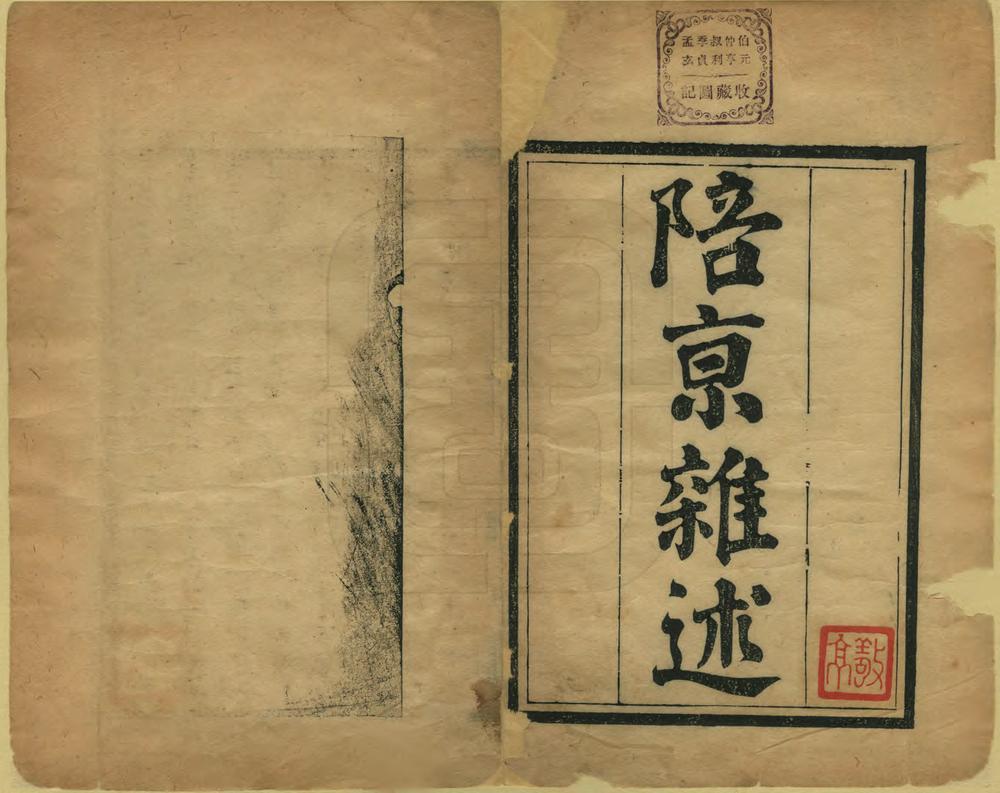 伯仲叔季孟
元亨利貞玄
收藏圖記
陪亰雜述